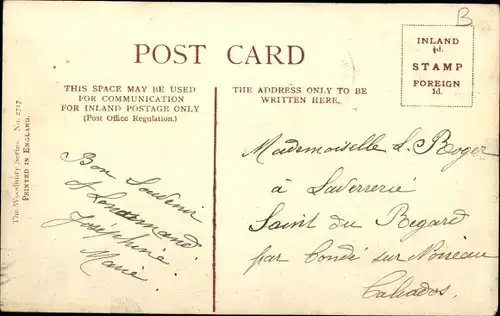 B
POST CARD
INLAND
½d.
STAMP
FOREIGN
1d.
THIS SPACE MAY BE USED
FOR COMMUNICATION
FOR INLAND POSTAGE ONLY
(Post Office Regulation.)
THE ADDRESS ONLY TO BE
WRITTEN HERE.
The Woodbury Series. No. 2717.
PRINTED IN ENGLAND.
Bon Souvenir
Joséphine
Marie
Mademoiselle L. Roger
à Laverrerie
Saint du Regard
par Condé sur Noireau
Calvados.